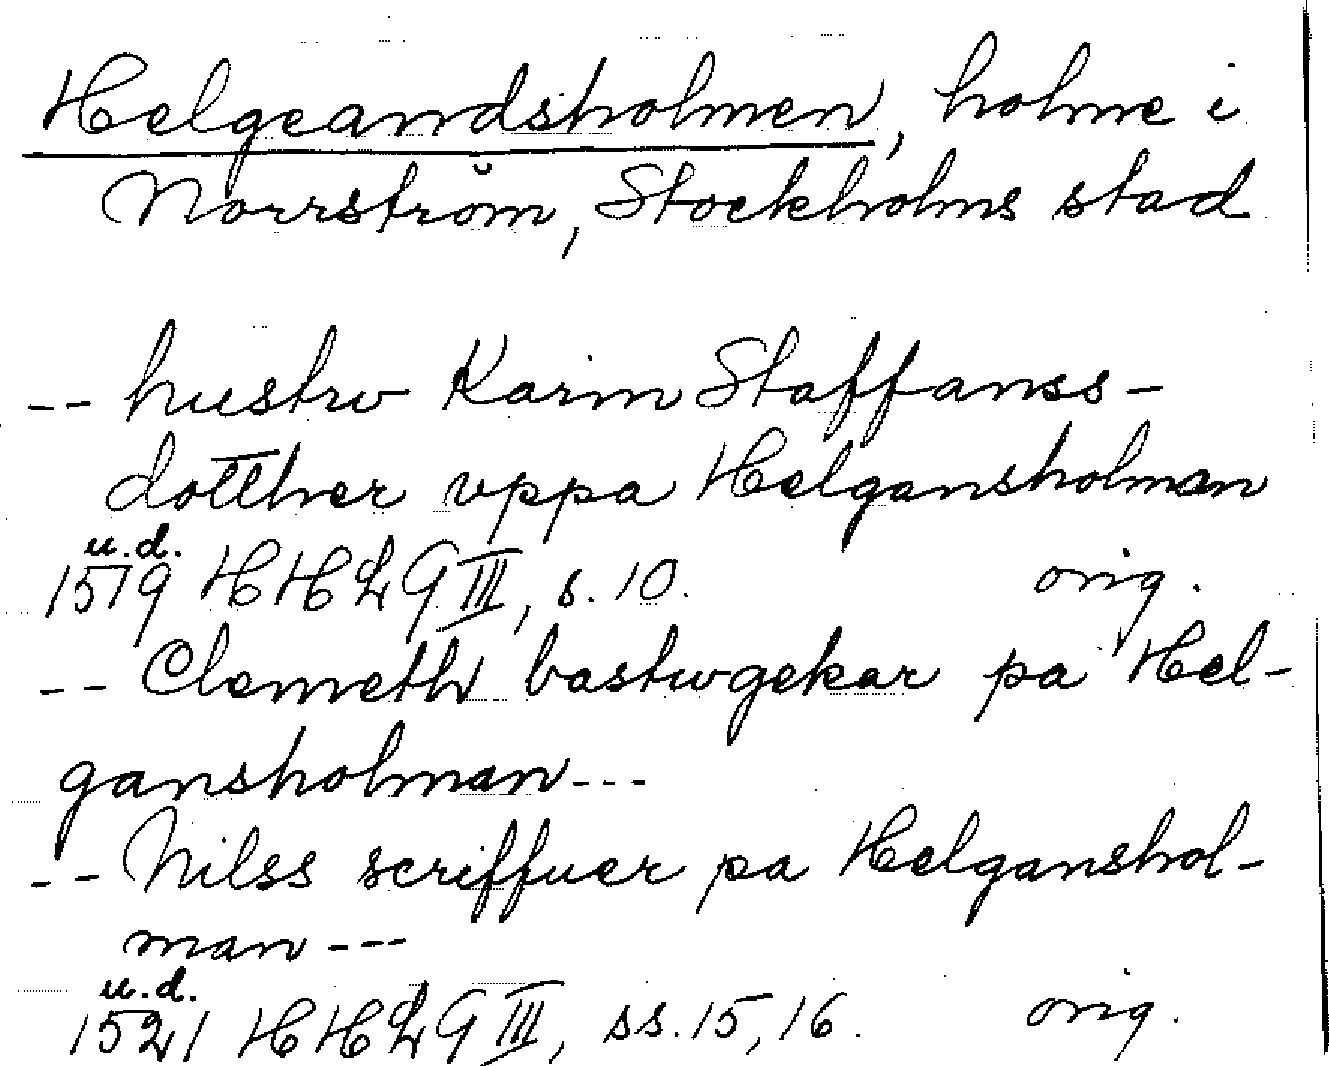 Helgeandsholmen, holme i
Norrström, Stockholms stad
-- hustrv Karin Staffanss-
dotther vppa Helgansholman
u.d.
1519 HHLG III, s. 10. orig.
-- Clemeth bastwgekar pa Hel-
gansholman ---
-- Nilss scriffuer pa Helganshol-
man ---
u.d.
1521 HHLG III, ss. 15, 16. orig.